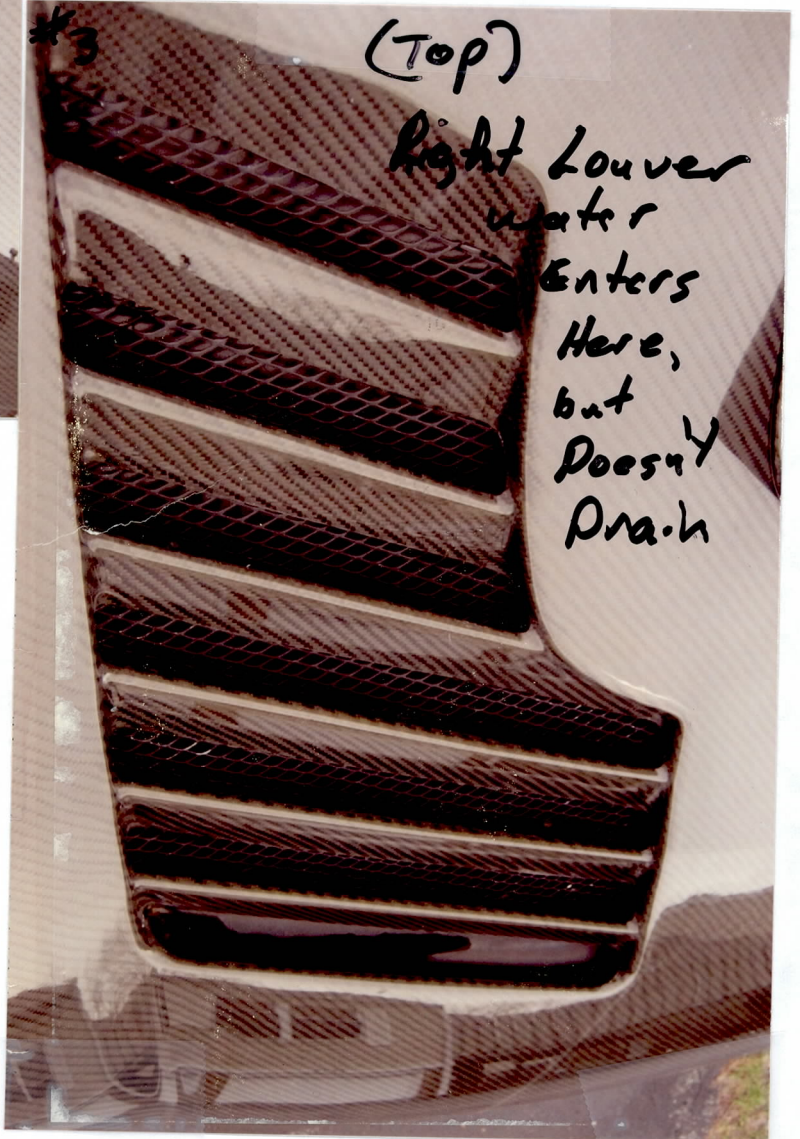 #3
(Top)
Right Louver
water
Enters
Here,
but
Doesn't
Drain